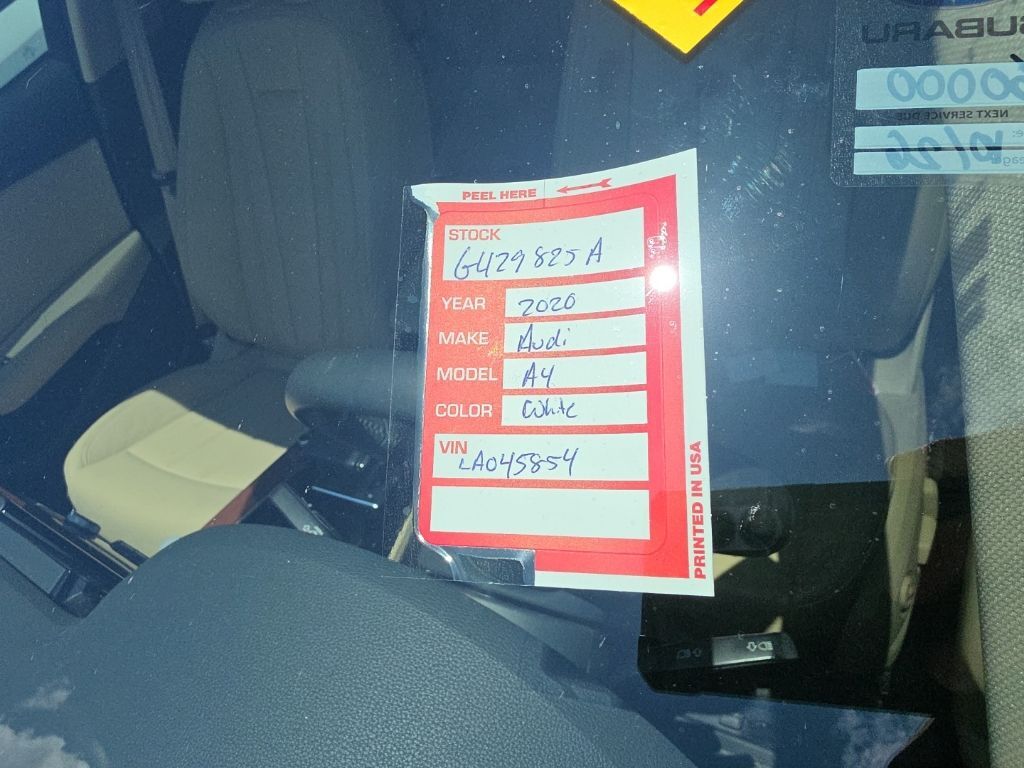 SUBARU
60000
NEXT SERVICE DUE
10/26
PEEL HERE
STOCK
G429825A
YEAR 2020
MAKE Audi
MODEL A4
COLOR White
VIN
LA045854
PRINTED IN USA